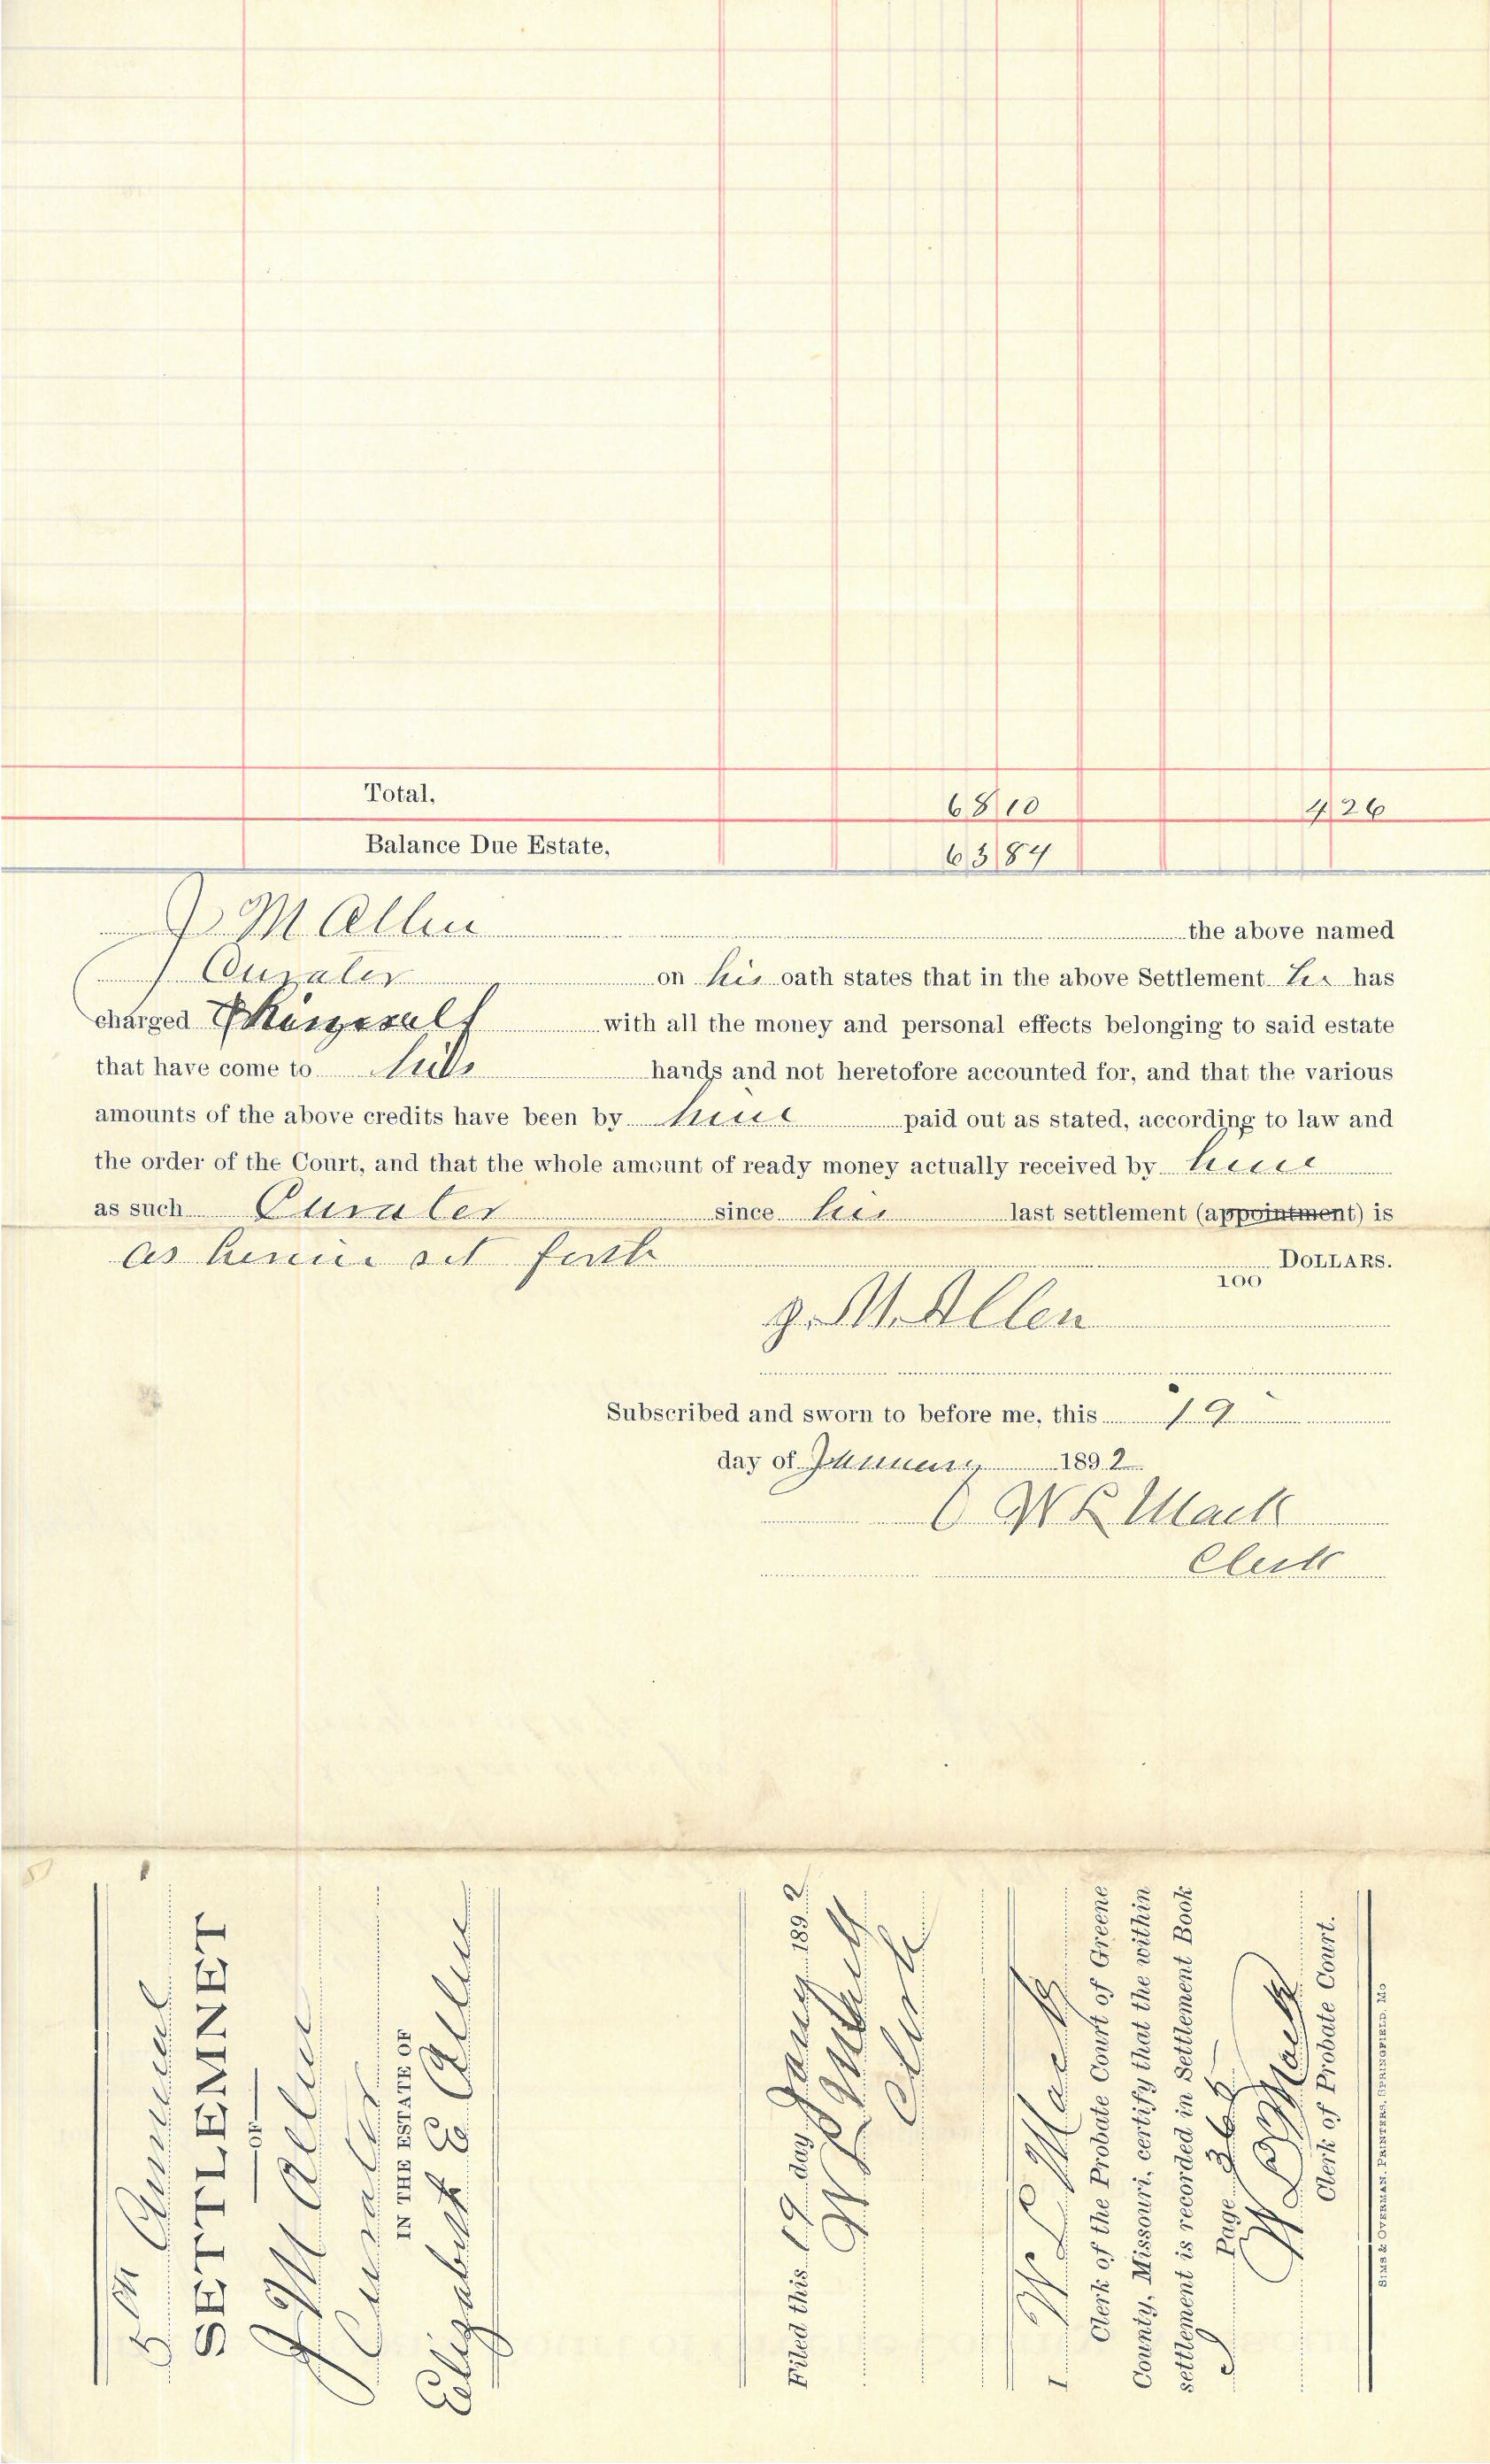 Total, 68 10 4 26
Balance Due Estate, 63 84
J M Allen the above named
Curator on his oath states that in the above Settlement he has
charged himself with all the money and personal effects belonging to said estate
that have come to his hands and not heretofore accounted for, and that the various
amounts of the above credits have been by him paid out as stated, according to law and
the order of the Court, and that the whole amount of ready money actually received by him
as such Curator since his last settlement (appointment) is
as herein set forth DOLLARS.
100
J. M. Allen
Subscribed and sworn to before me, this 19
day of January 1892
W L Mack
Clerk
5th Annual
SETTLEMNET
OF
J M Allen
Curator
IN THE ESTATE OF
Elizabeth E Allen
Filed this 19 day Jany 1892
W L Mack
Clerk
I W L Mack
Clerk of the Probate Court of Greene
County, Missouri, certify that the within
settlement is recorded in Settlement Book
Page 365
W L Mack
Clerk of Probate Court.
SIMS & OVERMAN, PRINTERS, SPRINGFIELD, MO